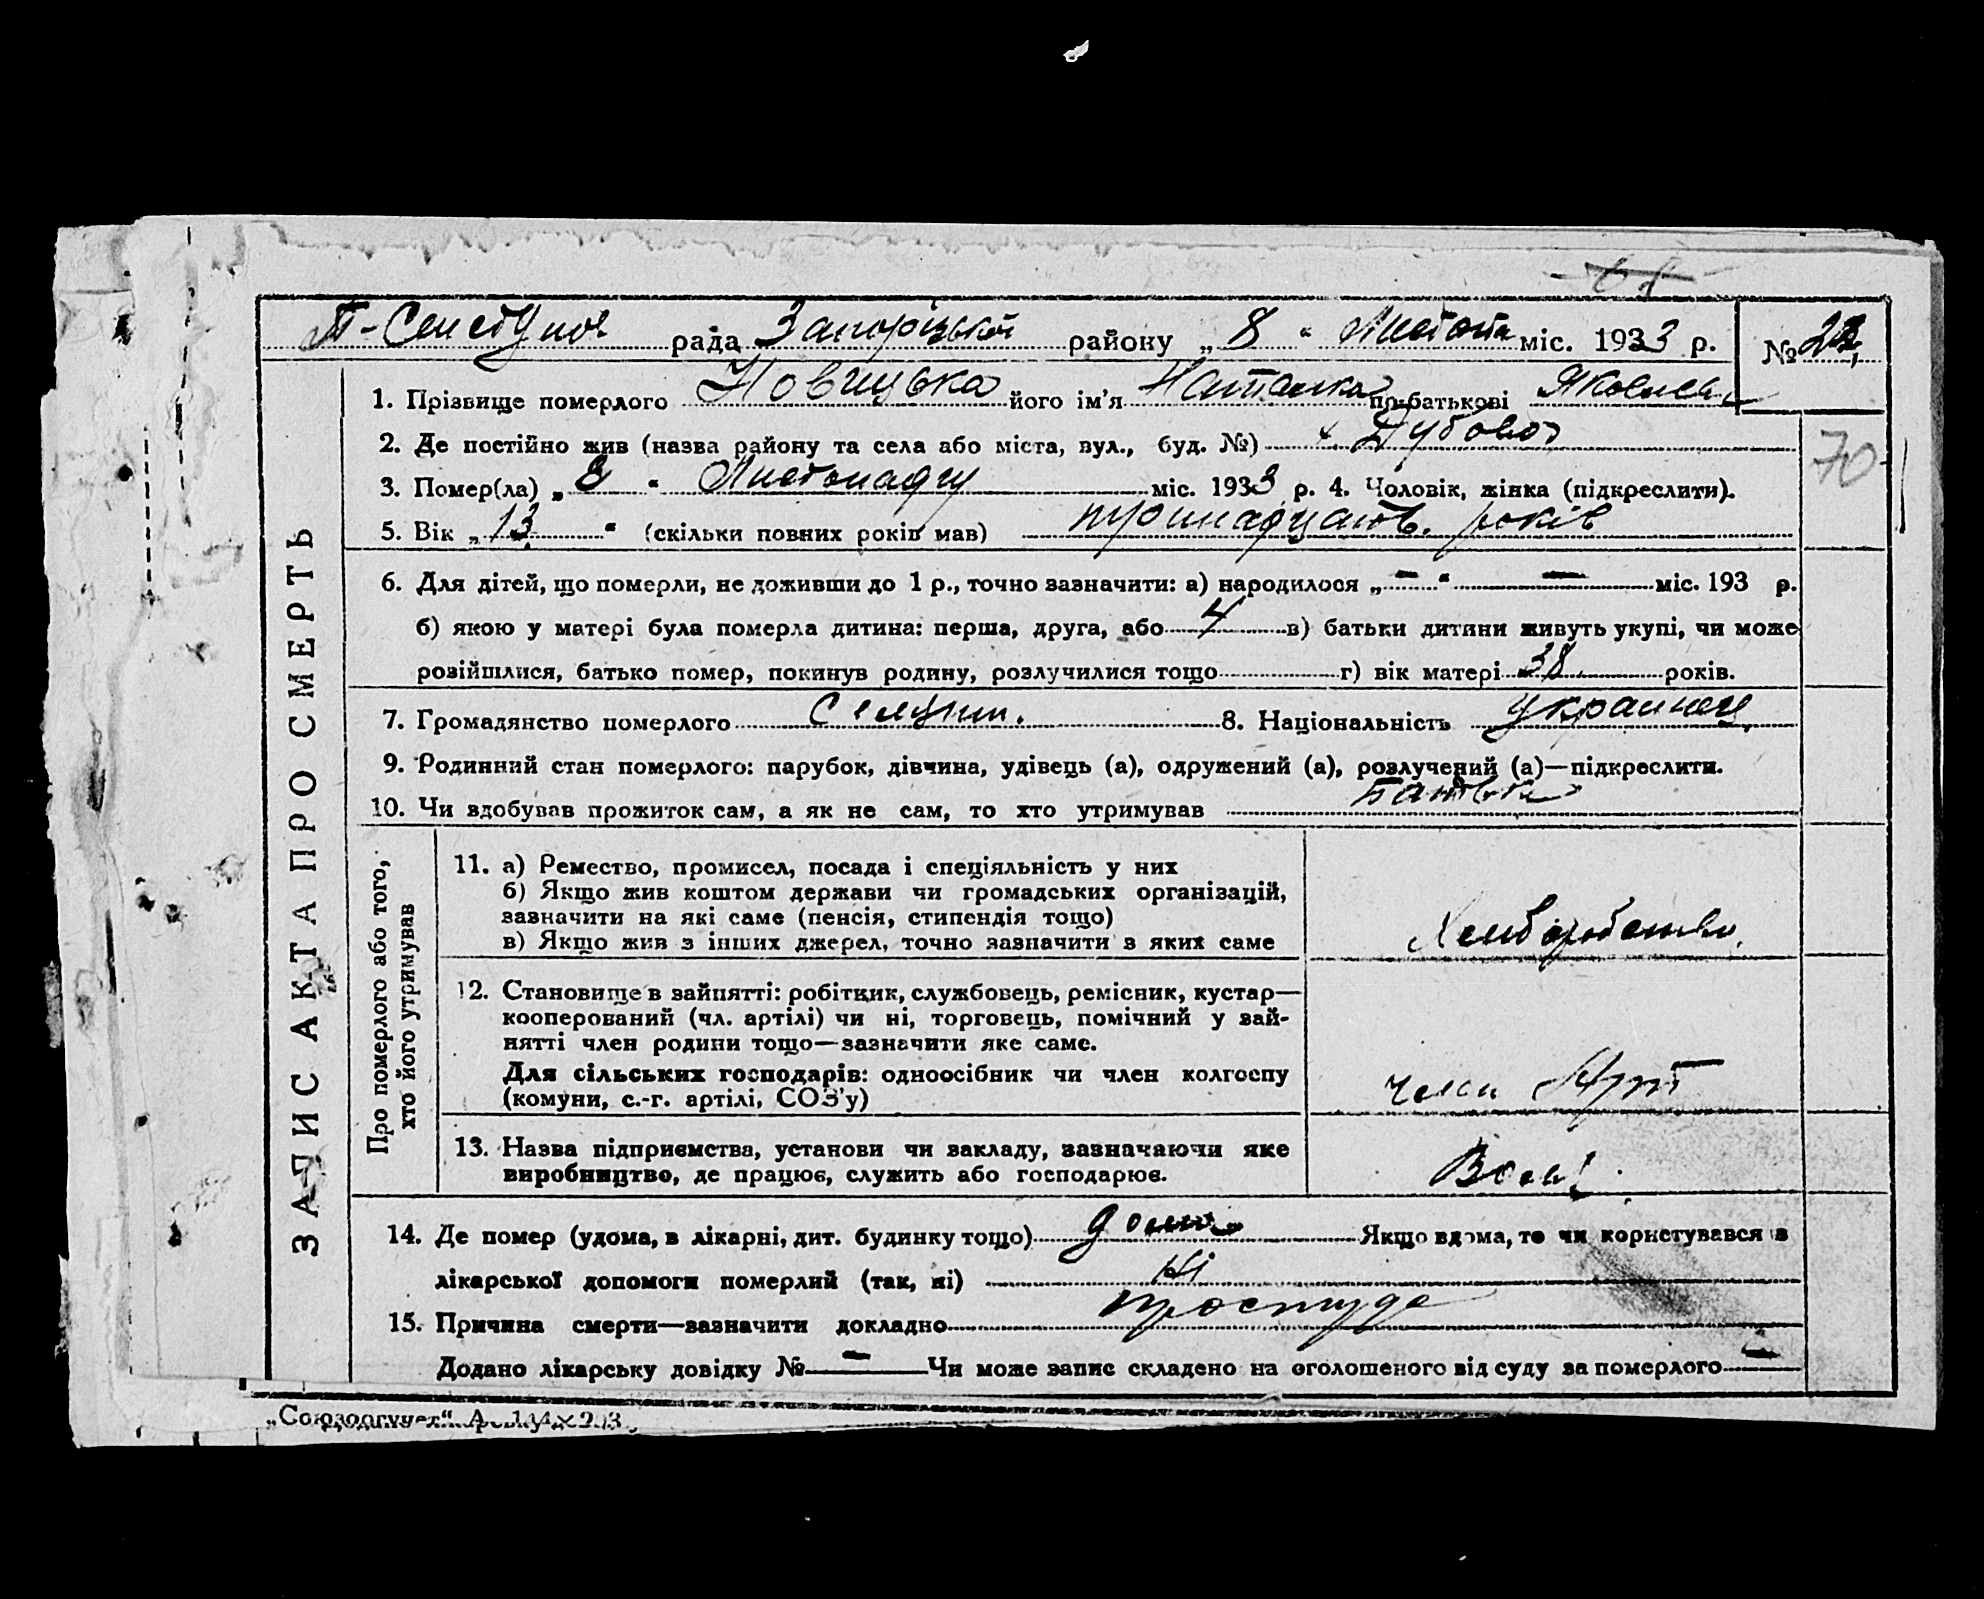 рада Запорізької району „ 8 “ Листопа міс. 1933 р. №
1. Прізвище померлого Новицька його ім'я Наталка по батькові Яковлев
2. Де постійно жив (назва району та села або міста, вул., буд. №) Дубово
3. Помер(ла) „ 8 “ Листопаду міс. 1933 р. 4. Чоловік, жінка (підкреслити).
5. Вік „ 13 “ (скільки повних років мав) тринадцать років
6. Для дітей, що померли, не доживши до 1 р., точно зазначити: а) народилося „ — “ — міс. 193 р.
б) якою у матері була померла дитина: перша, друга, або 4 в) батьки дитини живуть укупі, чи може
розійшлися, батько помер, покинув родину, розлучилися тощо г) вік матері 38 років.
7. Громадянство померлого Селянин. 8. Національність Украинец
9. Родинний стан померлого: парубок, дівчина, удівець (а), одружений (а), розлучений (а)—підкреслити.
10. Чи здобував прожиток сам, а як не сам, то хто утримував Батьки
ЗАПИС АКТА ПРО СМЕРТЬ
Про померлого або того,
хто його утримував
11. а) Ремество, промисел, посада і спеціяльність у них
б) Якщо жив коштом держави чи громадських організацій,
зазначити на які саме (пенсія, стипендія тощо)
в) Якщо жив з інших джерел, точно зазначити з яких саме
Хлиборобство
12. Становище в зайнятті: робітник, службовець, ремісник, кустар—
кооперований (чл. артілі) чи ні, торговець, помічний у зай-
нятті член родини тощо—зазначити яке саме.
Для сільських господарів: одноосібник чи член колгоспу
(комуни, с.-г. артілі, СОЗ'у)
член Арт
13. Назва підприємства, установи чи закладу, зазначаючи яке
виробництво, де працює, служить або господарює.
14. Де помер (удома, в лікарні, дит. будинку тощо) дома Якщо вдома, то чи користувався з
лікарської допомоги померлий (так, ні) Ні
15. Причина смерти—зазначити докладно простуда
Додано лікарську довідку № — Чи може запис складено на оголошеного від суду за померлого —
70